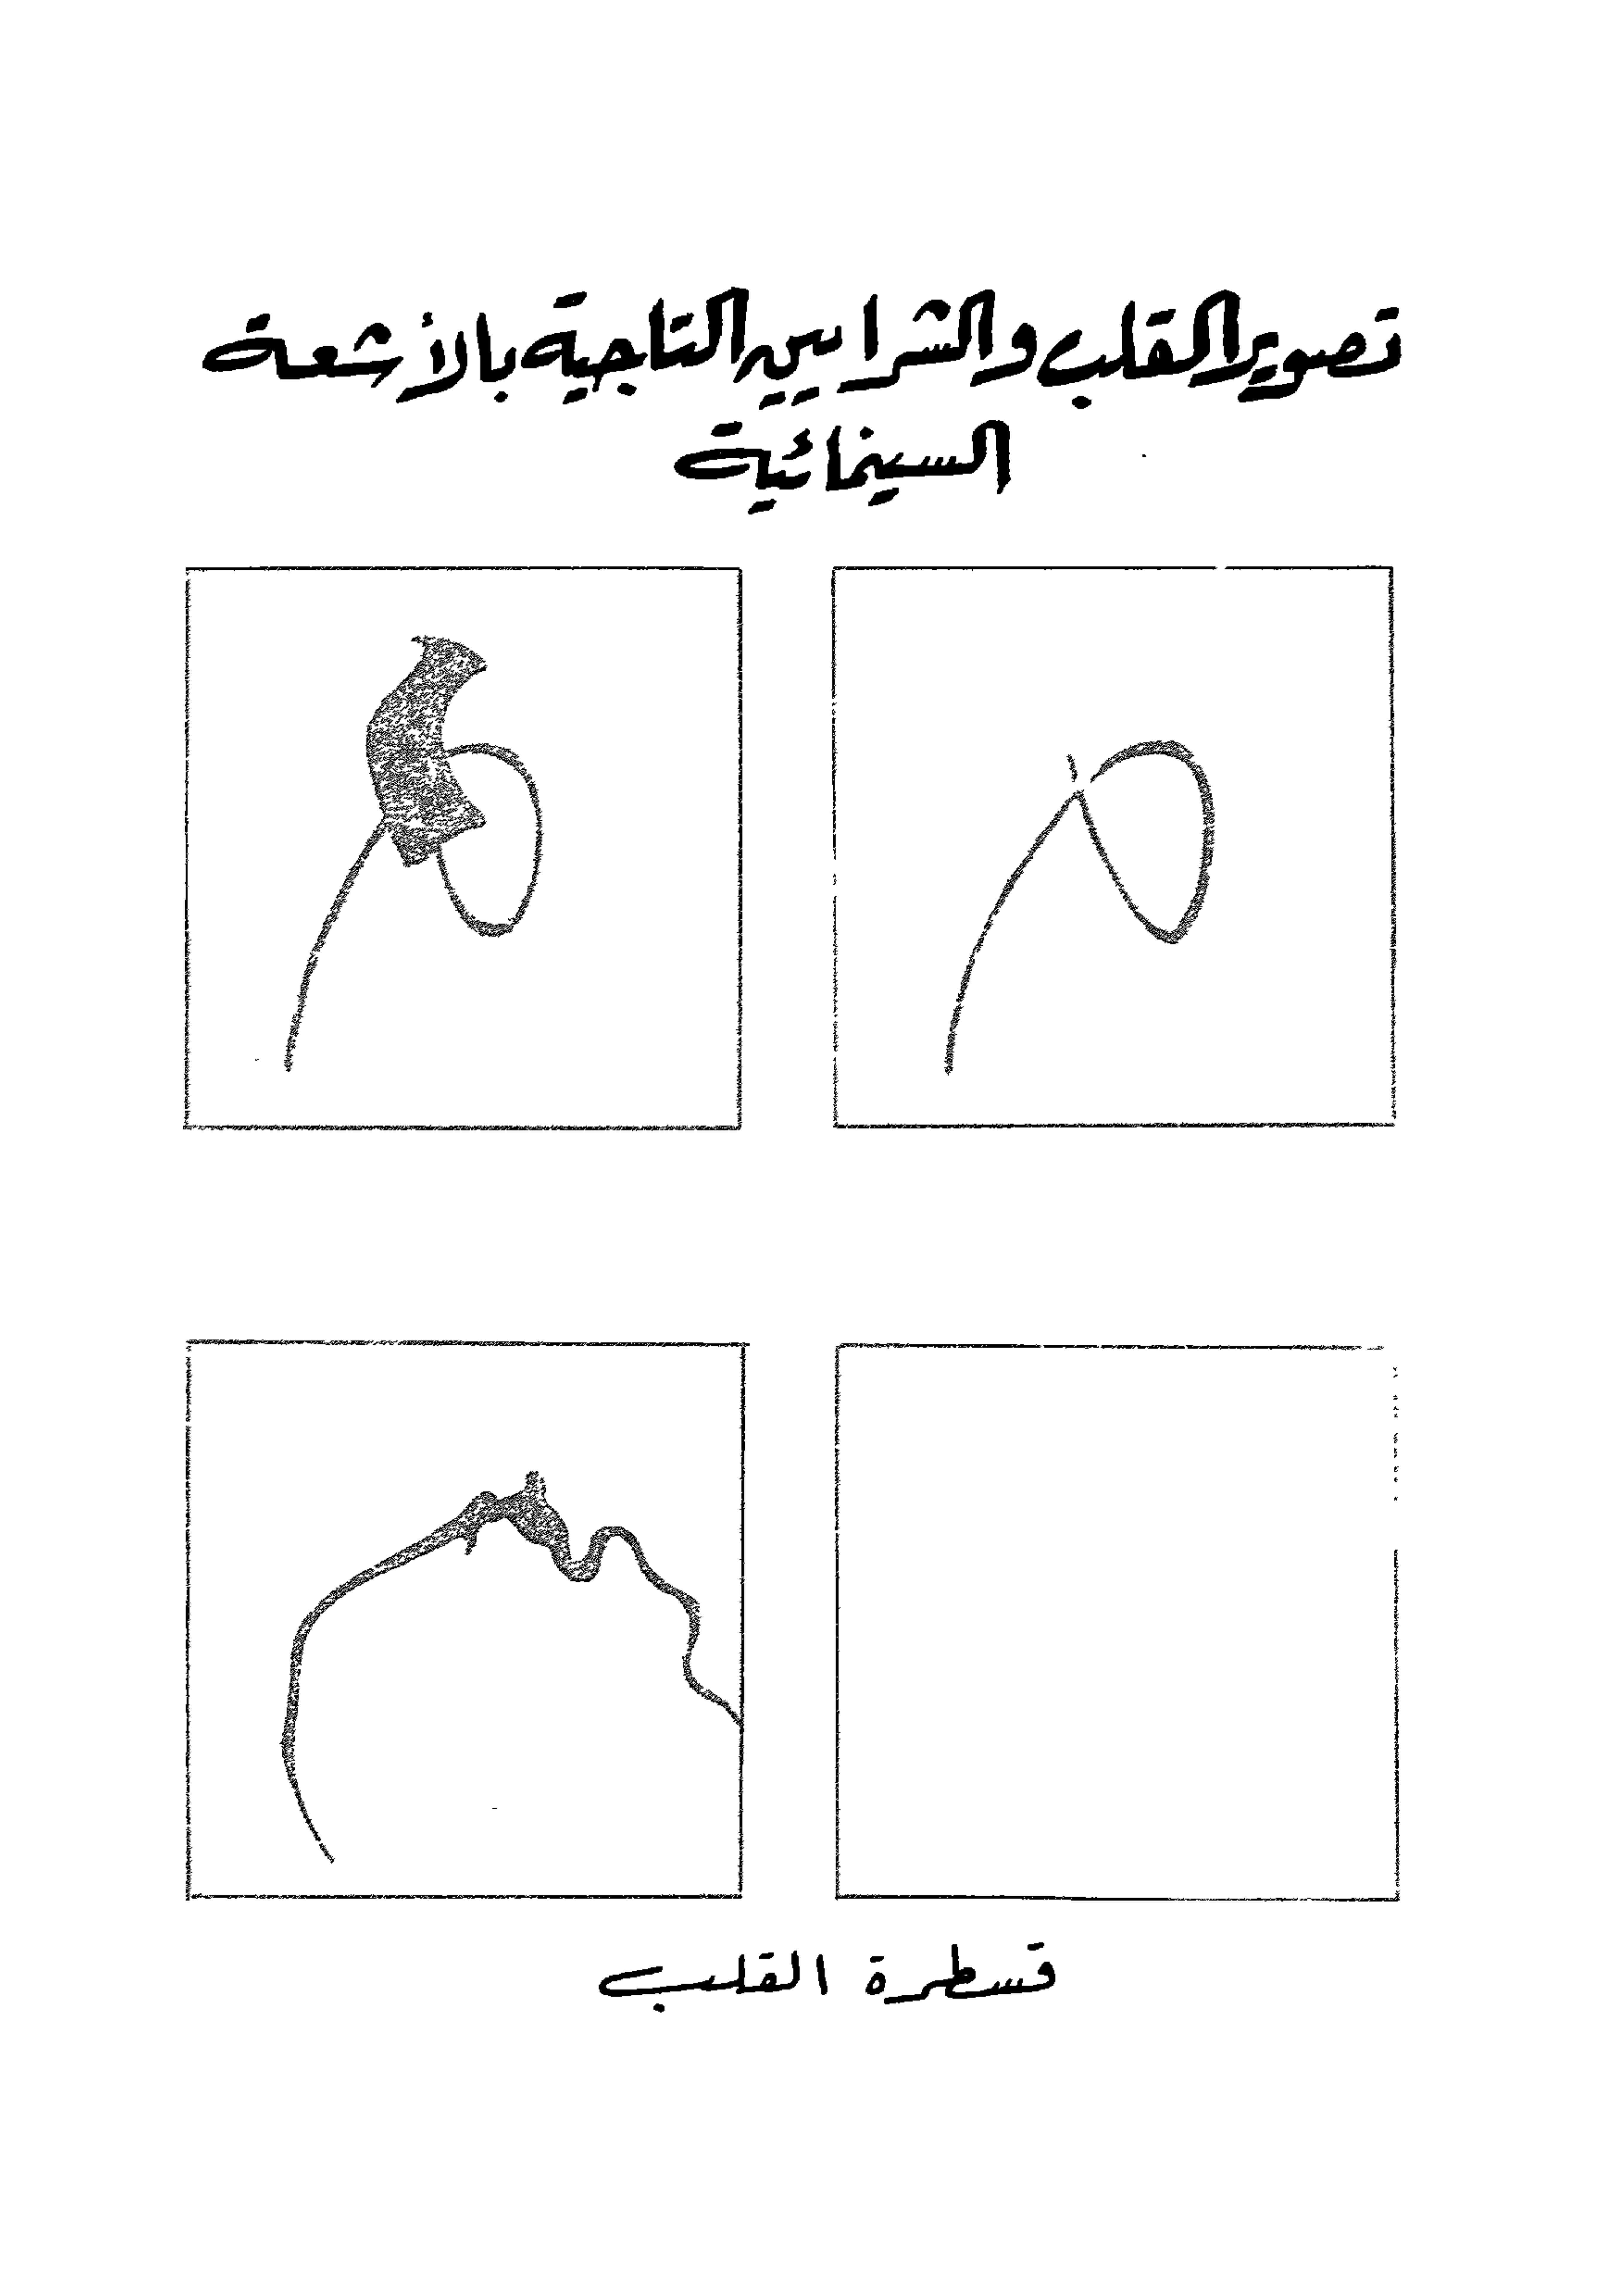 تصوير القلب والشرايين التاجية بالأشعة
السينمائية
قسطرة القلب